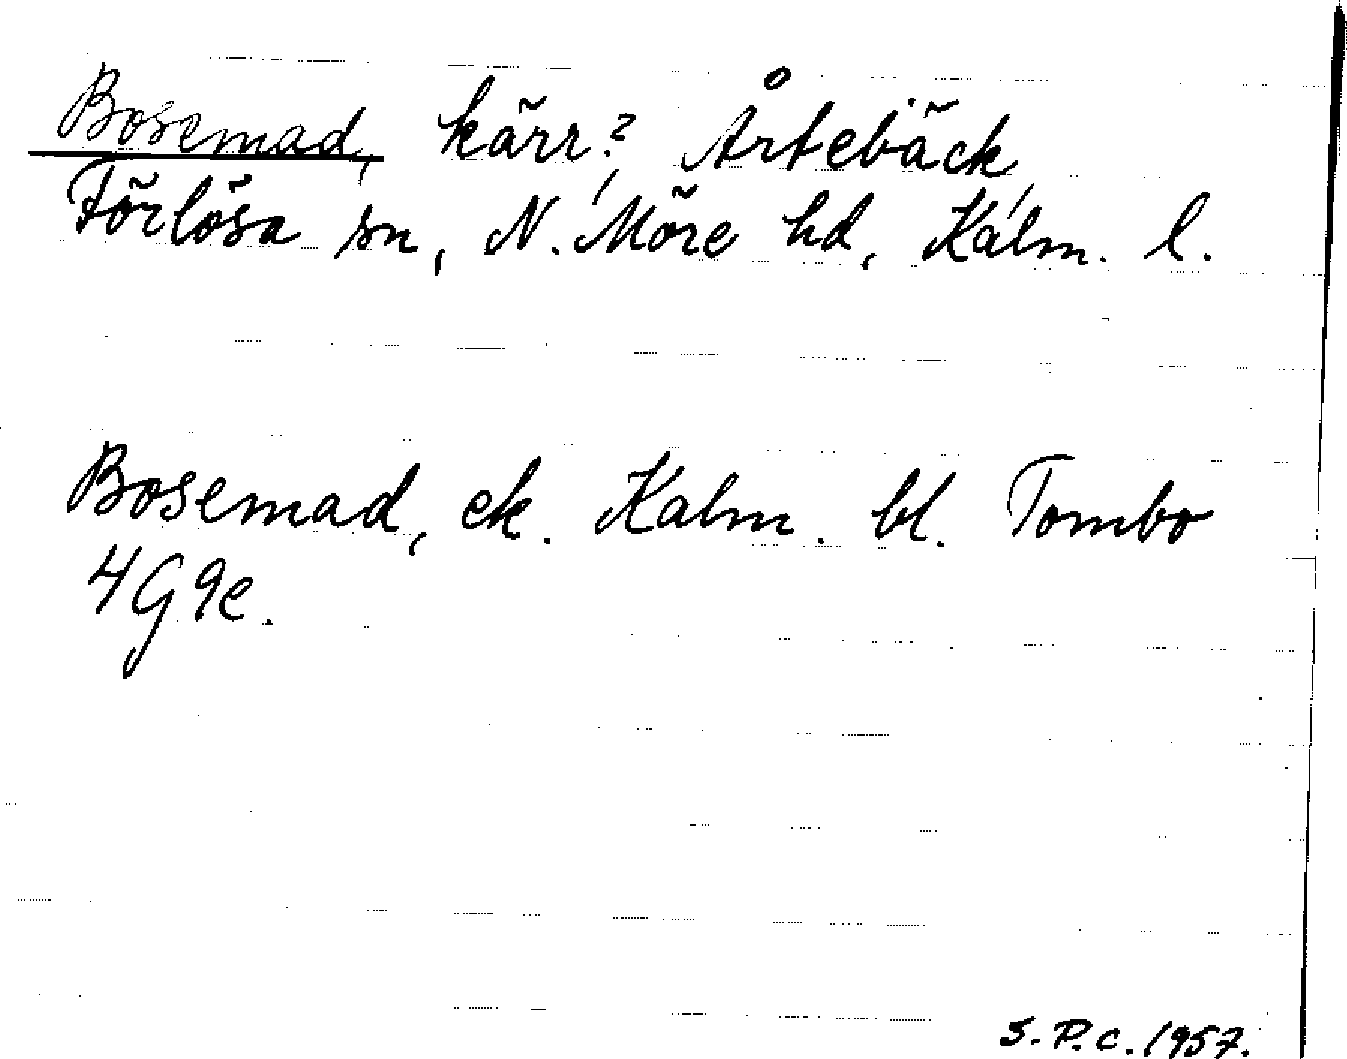 Bosemad, kärr?, Årtebäck,
Förlösa sn, N. Möre hd, Kalm. l.
Bosemad, ek. Kalm. bl. Tombo
4G9e.
S.P.C. 1957.